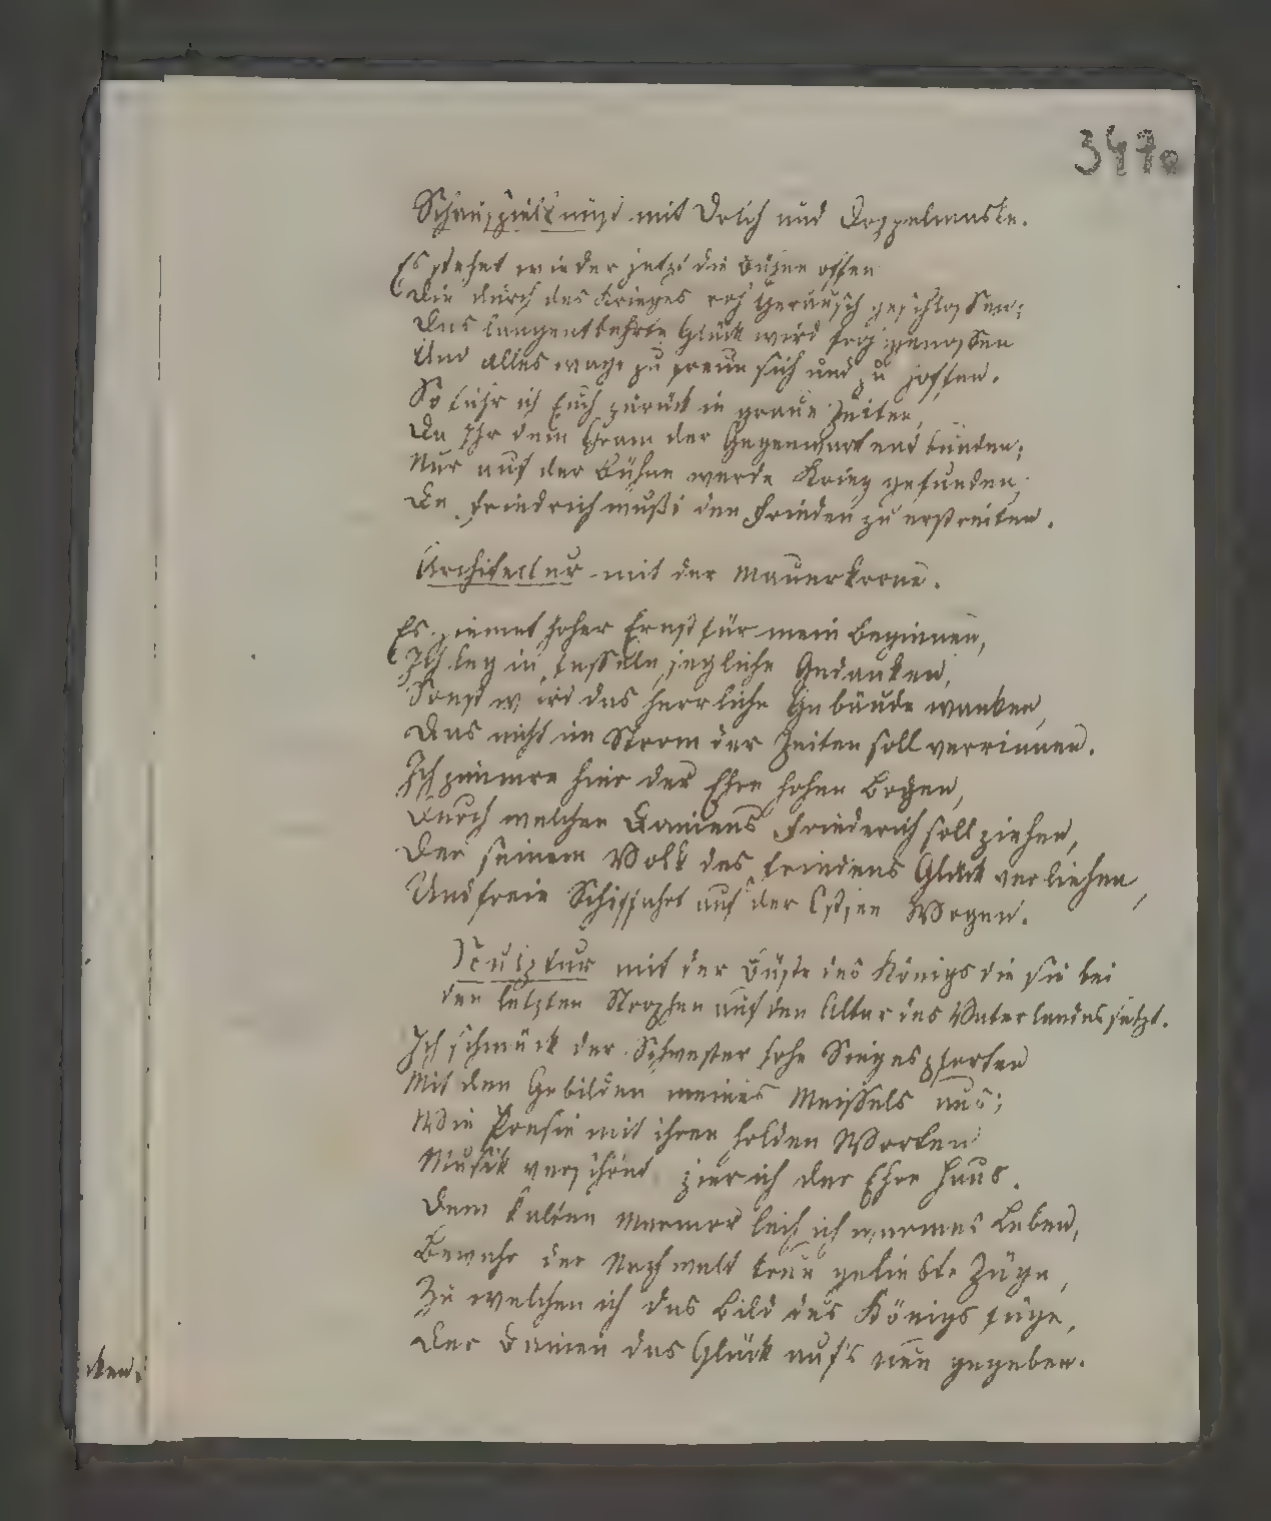 3470
Schauspielkunst mit Dolch und Doppelmaske.
Es stehet wieder jetzt die Bühne offen
Die durch des Krieges roh Geräusch geschlossen;
Das langentbehrte Glück wird froh genossen
Und alles wagt zu freun sich und zu hoffen.
So führ ich Euch zurück in graue Zeiten,
Da Ihr dem Gram der Gegenwart entbunden;
Nur auf der Bühne werde Krieg gefunden,
Da Friedrich wußt den Frieden zu erstreiten.
Architectur mit der Mauerkrone.
Es ziemet hoher Ernst für mein Beginnen,
Ich leg in Fesseln jegliche Gedanken,
Sonst wird das herrliche Gebäude wanken,
Das nicht im Strom der Zeiten soll verrinnen.
Ich zimmre hier der Ehre hohen Bogen,
Durch welchen Daniens Friederich soll ziehen,
Der seinem Volk des Friedens Glück verliehen,
Und freie Schiffahrt auf der Ostsee Wogen.
Sculptur mit der Büste des Königs die sie bei
den letzten Strophen auf den Altar des Vaterlandes setzt.
Ich schmück der Schwester hohe Siegespforten
Mit den Gebilden meines Meissels aus;
Wie Poesie mit ihren holden Worten
Musik verschönt zier ich der Ehre Haus.
Dem kalten Marmor leih ich warmes Leben,
Bewahr der Nachwelt treu geliebte Züge,
Zu welchen ich das Bild des Königs füge,
Der Danien das Glück auf's neu gegeben.